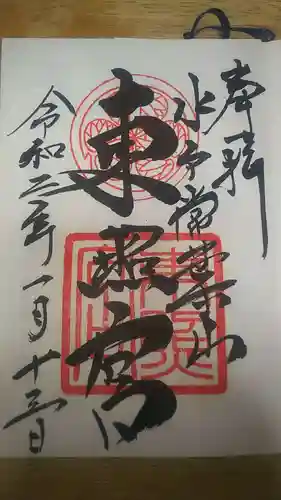 奉拝
水戸常葉山
東照宮
令和二年一月十三日